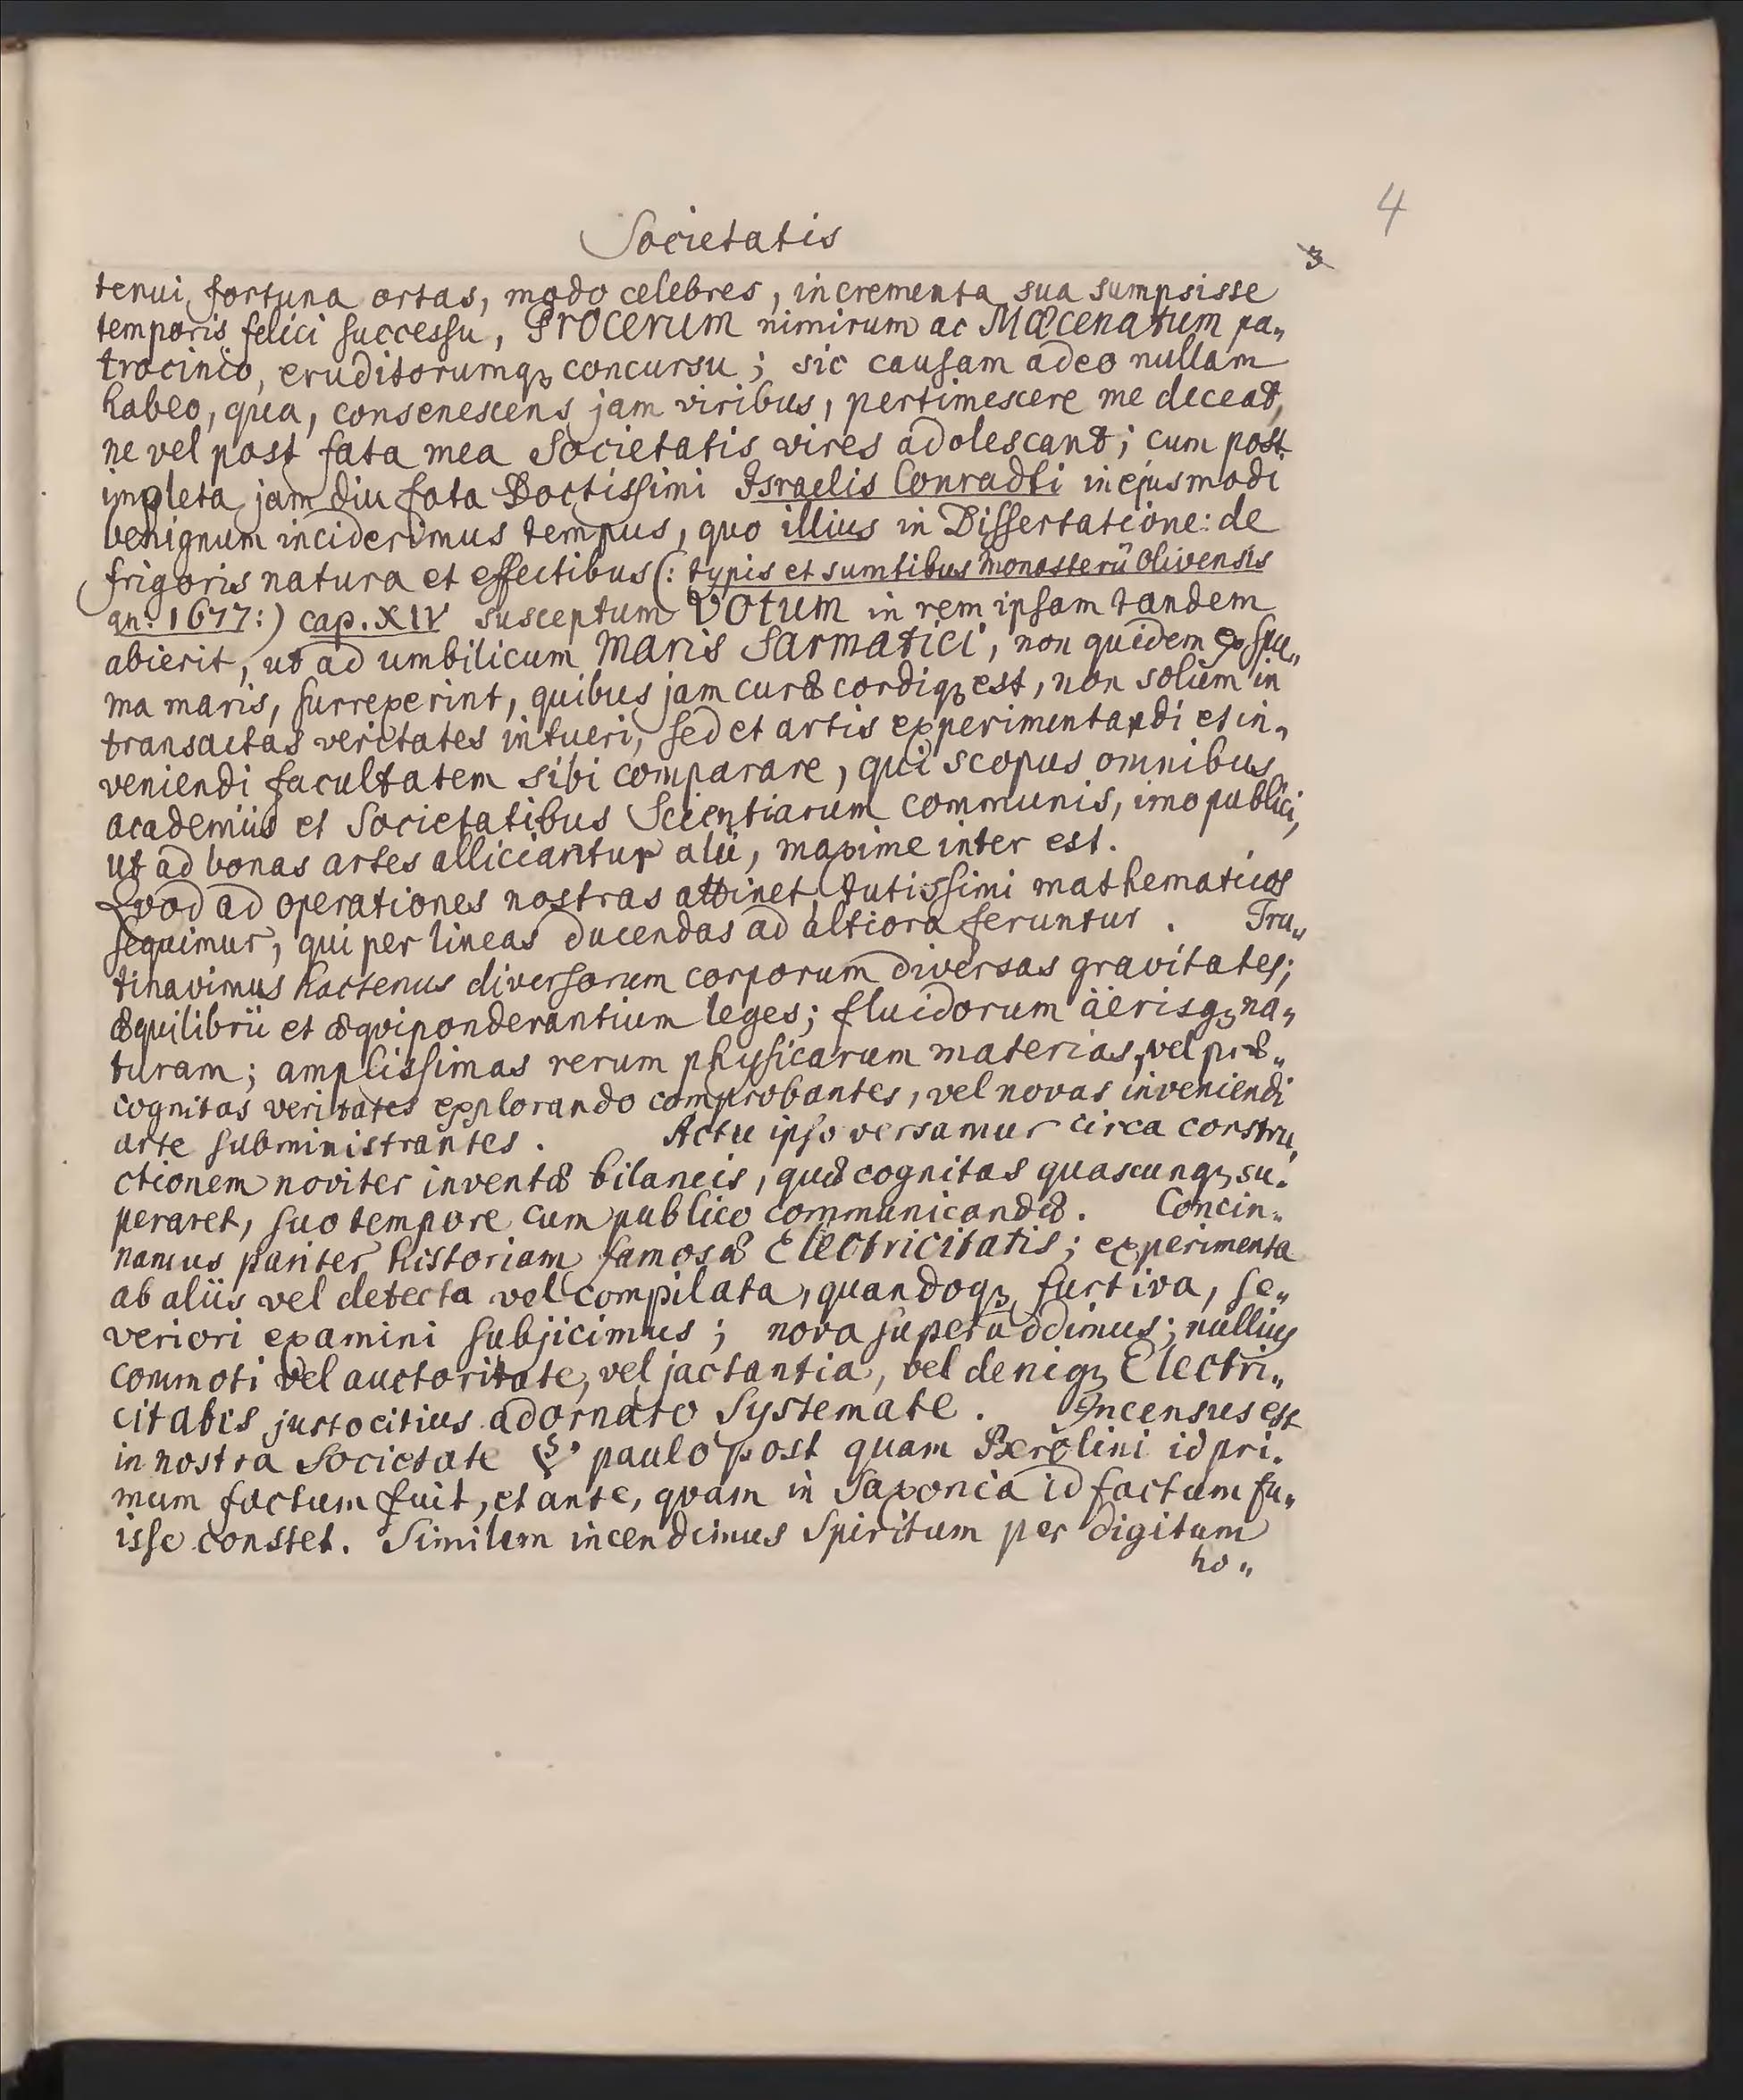 4
Societatis
3
tenui fortuna ortas, modo celebres, incrementa sua sumpsisse
temporis felici successu, Procerum nimirum ac Mæcenatum pa„
trocinio, eruditorumqꝫ concursu; sic causam adeo nullam
habeo, qua, consenescens jam viribus, pertimescere me deceat,
ne vel post fata mea Societatis vires adolescant; cum post
impleta jam diu fata Doctissimi Israelis Conradti in ejusmodi
benignum inciderimus tempus, quo illius in Dissertatione: de
frigoris natura et effectibus (: typis et sumtibus Monasterii Olivensis
an. 1677:) cap. XIV susceptum Votum in rem ipsam tandem
abierit, ut ad umbilicum Maris Sarmatici, non quidem ex spu„
ma maris, surrexerint, quibus jam curæ cordiqꝫ est, non solum in
transactas veritates intueri, sed et artis experimentandi et in„
veniendi facultatem sibi comparare, qui scopus omnibus
academiis et Societatibus Scientiarum communis, imo publici,
ut ad bonas artes alliciantur alii, maxime inter est.
Qvod ad operationes nostras attinet, tutissimi mathematicos
sequimur, qui per lineas ducendas ad altiora feruntur. Tru„
tinavimus hactenus diversorum corporum diversas gravitates;
æquilibrii et æqviponderantium leges; fluidorum äerisqꝫ na„
turam; amplissimas rerum physicarum materias, vel præ„
cognitas veritates explorando comprobantes, vel novas inveniendi
arte subministrantes. Actu ipso versamur circa constru„
ctionem noviter inventæ bilancis, quæ cognitas quascunqꝫ su„
peraret, suo tempore cum publico communicandæ. Concin„
namus pariter historiam famosæ Electricitatis; experimenta
ab aliis vel detecta vel compilata, quandoqꝫ furtiva, se„
veriori examini subjicimus; nova superaddimus; nullius
commoti vel auctoritate, vel jactantia, vel deniqꝫ Electri„
citatis justo citius adornato Systemate. Incensus est
in nostra Societate paulo post quam Berolini id pri„
mum factum fuit, et ante, qvam in Saxonia id factum fu„
isse constet. Similem incendimus Spiritum per digitum
ho„